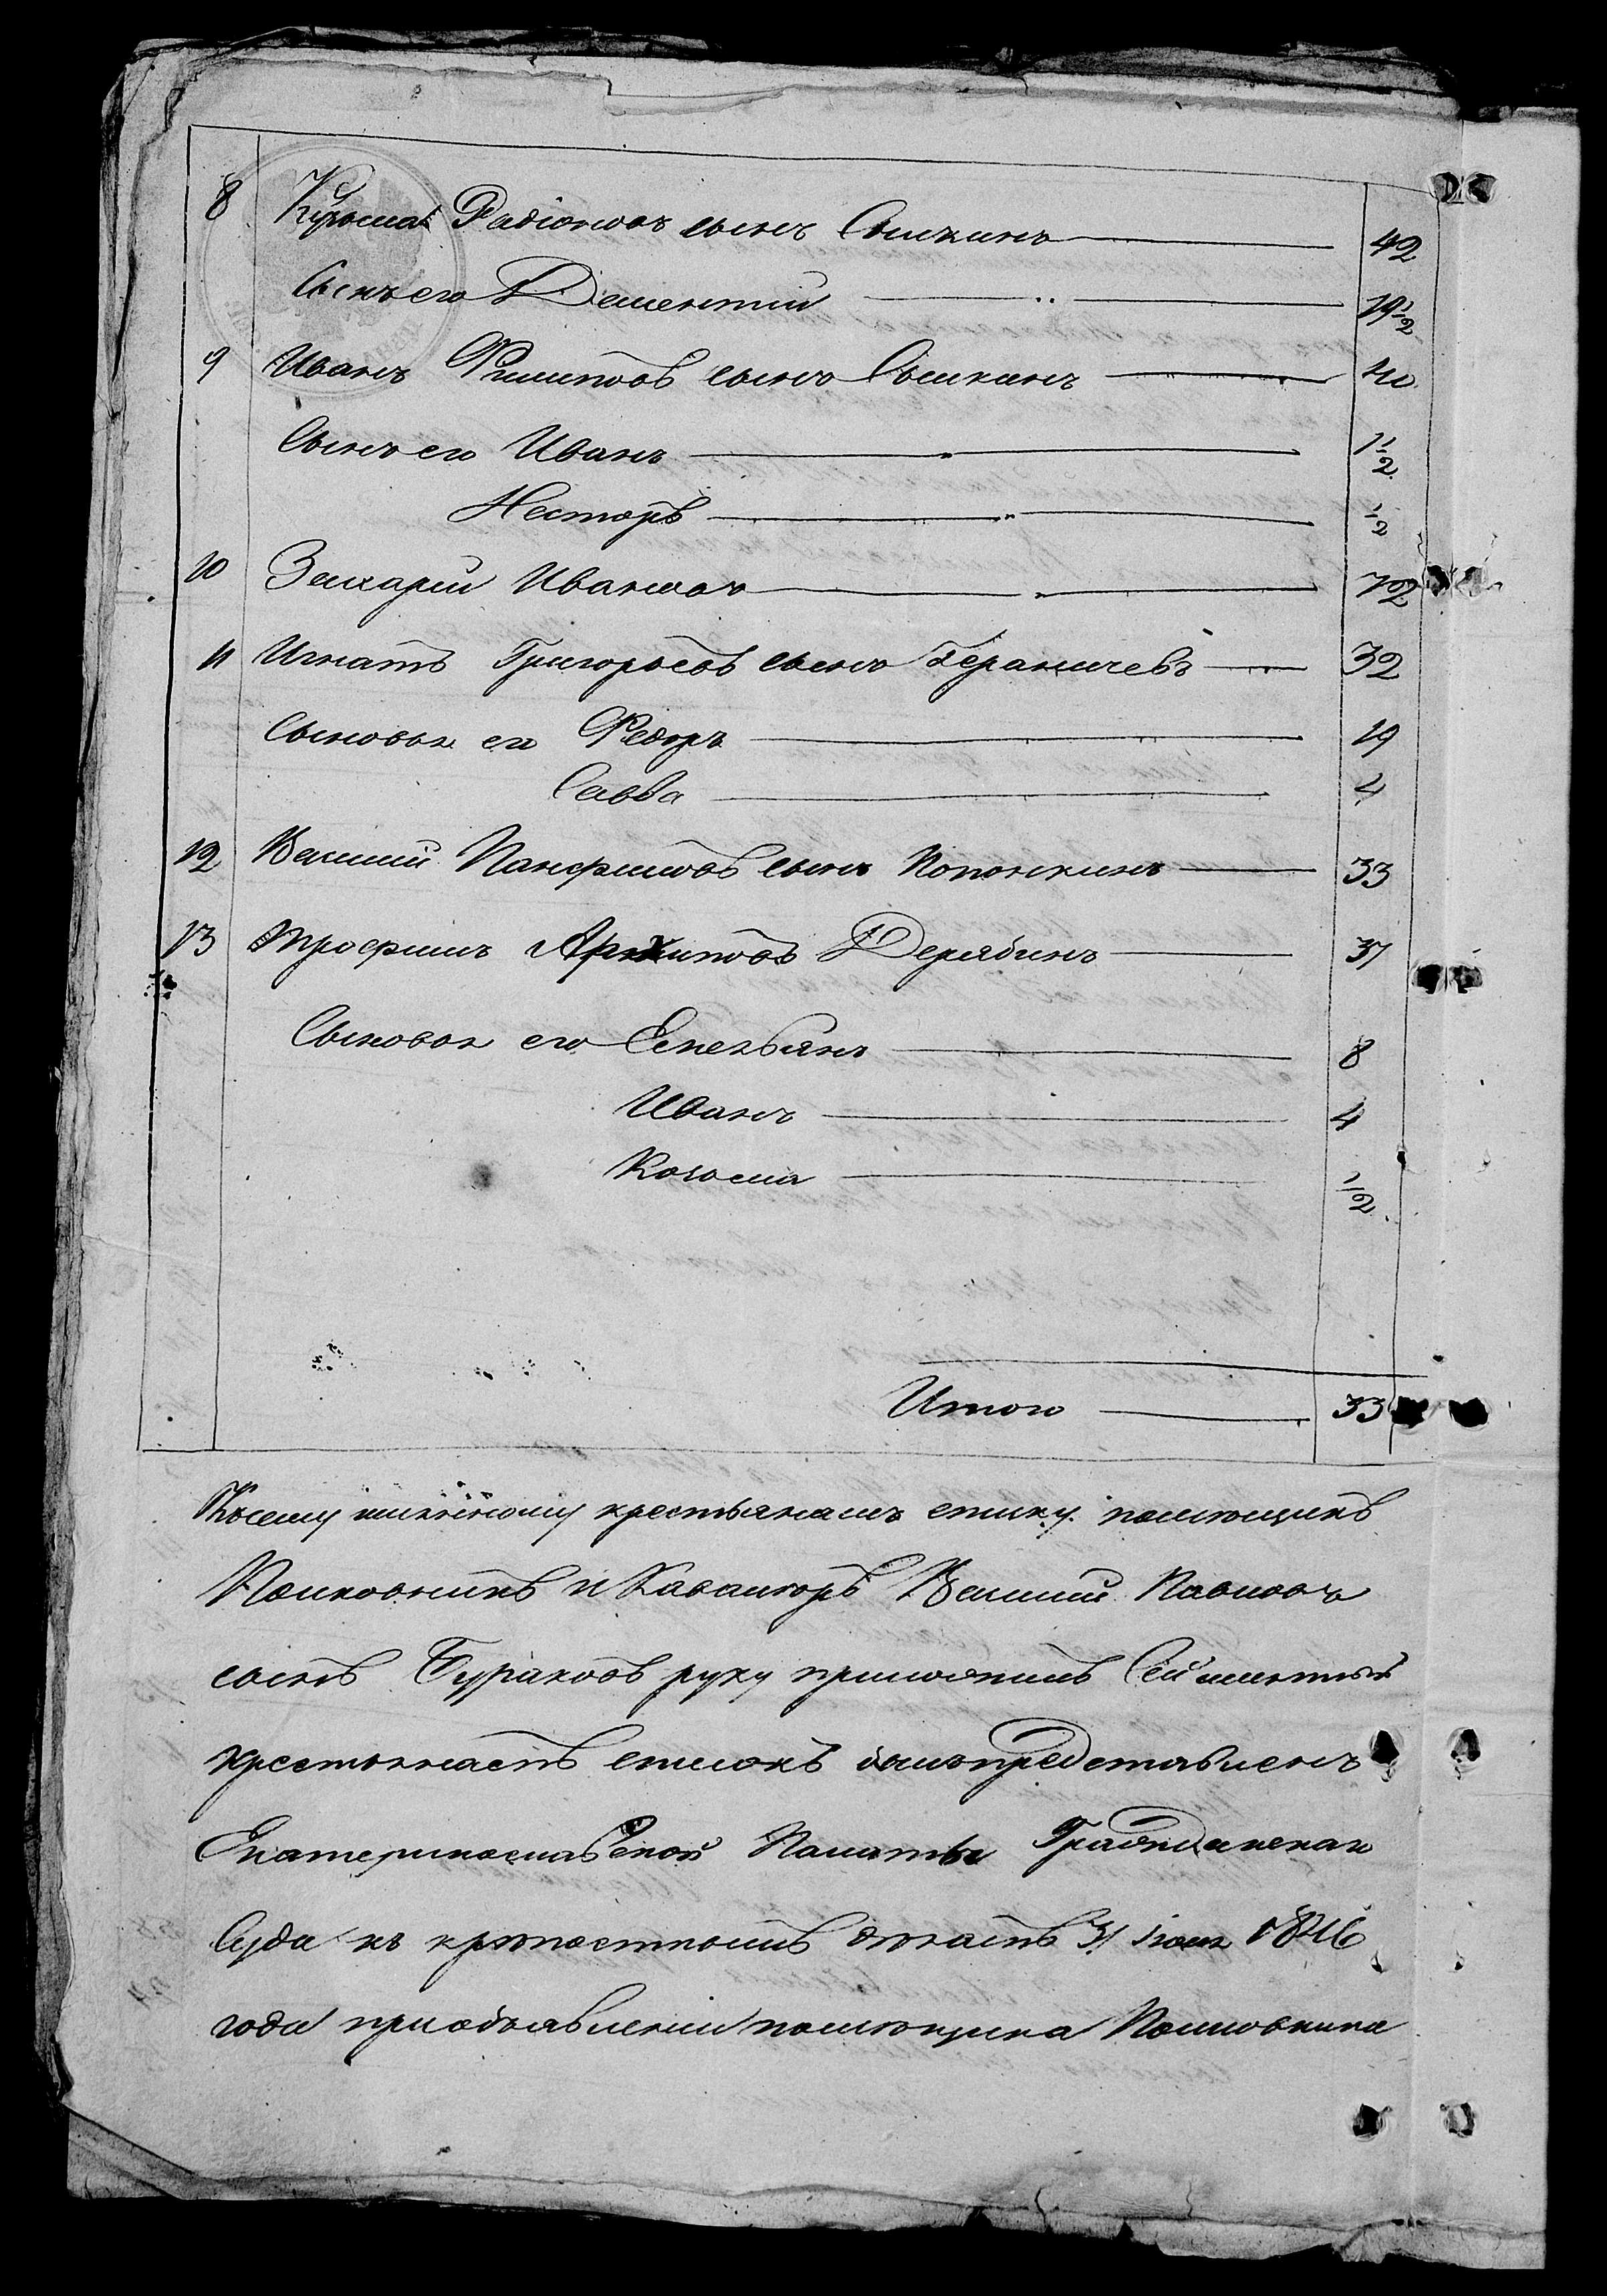 8 Кузьма Радіоновъ сынъ Сычкинъ 42
Сынъ его Дементій 19½
9 Иванъ Филиповъ сынъ Сычкинъ 40
Сынъ его Иванъ 1½
Несторъ ½
10 Захарій Ивановъ 72
11 Игнатъ Григорьевъ сынъ 32
Сыновья его Федоръ 19
Савва 4
12 Василий Панфиловъ сынъ 33
13 Трофимъ Архиповъ Дерябинъ 37
Сыновья его Емельянъ 8
Иванъ 4
Козьма ½
Итого 33
Къ сему имянному крестьянамъ списку помещикъ
Полковникъ и Кавалеръ Василий Павловъ
сынъ Бураковъ руку приложилъ Сей имянный
крестьянамъ списокъ былъ представленъ
Екатеринославской Палаты Гражданскаго
Суда къ крепостнымъ деламъ 31 1846
года при объявлении помещика Полковника